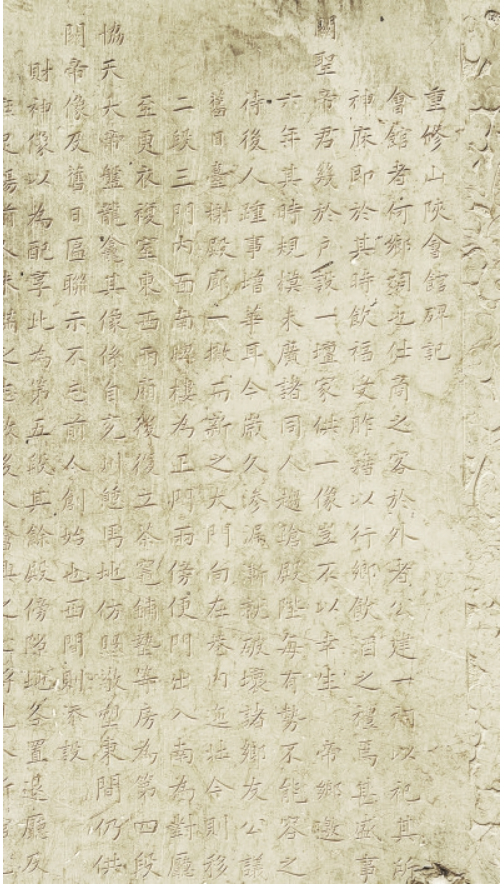 重修山陝會館碑記
會館者何鄉祠也仕商之客於外者公建一祠以祀其所
神庥即於其時飲福受胙藉以行鄉飲酒之禮焉甚盛事
關聖帝君幾於戶設一壇家供一像豈不以幸生 帝鄉
六年其時規模未廣諸同人趨蹌殿陛每有勢不能容之
待後人踵事增華耳今歲久滲漏漸就破壞諸鄉友公議
舊日臺榭殿廊一撤而新之大門向在巷內迤北今則移
二段三門內面南牌樓為正門兩傍便門出入南為對廳
至更衣複室東西兩廂後復立茶灶鋪墊等房為第四段
協天大帝盤龍龕其像係自兗州馬地仿塑東間仍供
關帝像及舊日匾聯示不忘前人創始也西間則添設
財神像以為配享此為第五段其餘殿傍隙地各置退廳及